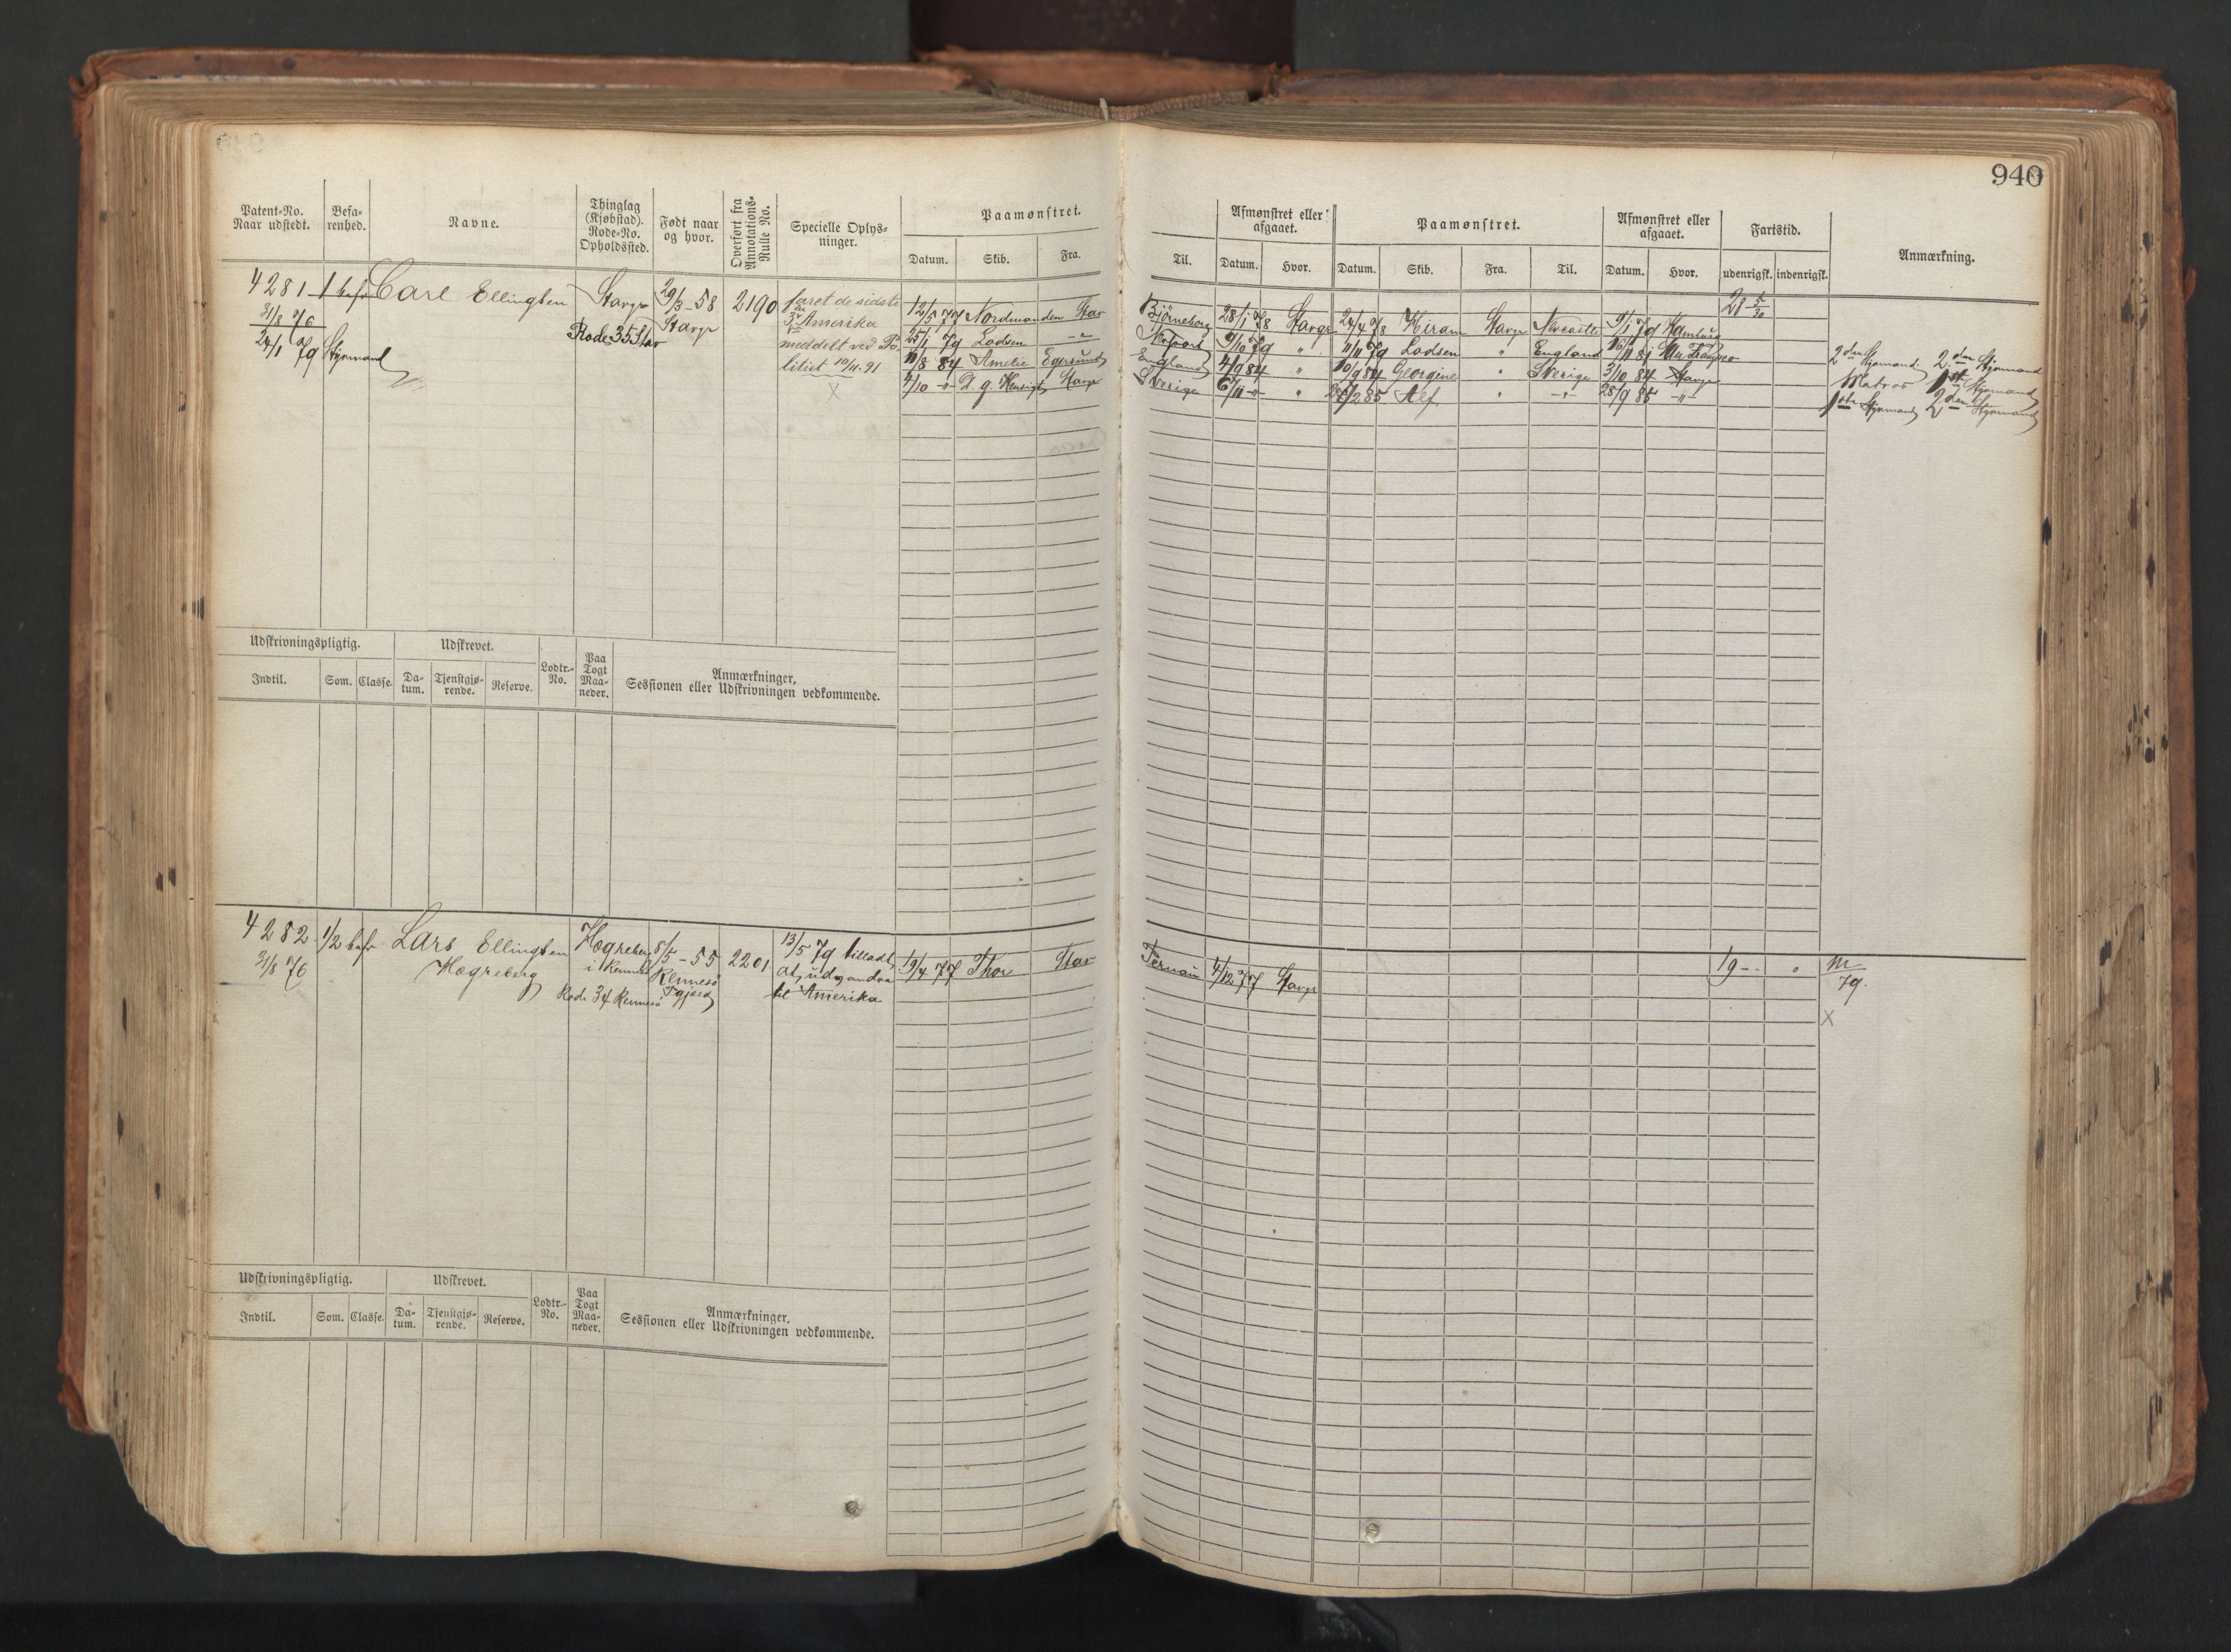 940
Patent-No. Naar udstedt. Befa-renhed. Navne. Thinglag (Kjøbstad). Rode-No. Opholdssted. Født naar og hvor. Overført fra Annotations-Rulle No. Specielle Oplys-ninger. Paamønstret. Afmønstret eller afgaaet. Paamønstret. Afmønstret eller afgaaet. Fartstid. Anmærkning.
Datum. Skib. Fra. Til. Datum. Hvor. Datum. Skib. Fra. Til. Datum. Hvor. udenrigsk. indenrigsk.
4281 1 bef Carl Ellingsen Stavgr 29/3-58 2190 faret de sidste
31/8 76 Rode 35 Stav Stavgr Amerika
24/1 79 Styrmand meddelt ved Po-
litiet 10/11.91
X
12/5 77 Nordmanden Stav Björneborg 28/1 78 Stavgr 24/4 78 Hiram Stavgr Newcastle 9/1 79 Hamburg 28 5/30
25/1 79 Lodsen -"- 9/10 79 " 11/11 79 Lodsen " England 16/11 81
11/8 84 Amelie Egersund England 4/9 84 " 10/9 84 Georgine " Sverige 3/10 84 Stavgr
4/10 -"- Stavgr Sverige 6/11 -"- " 2/2 85 Alf " -"- 28/9 85 -"-
2den Styrmand 2den Styrmand
Matros 1ste Styrmand
1ste Styrmand 2den Styrmand
Udskrivningspligtig. Udskrevet. Lodtr.-No. Paa Togt Maa-neder. Anmærkninger, Sessionen eller Udskrivningen vedkommende.
Indtil. Som. Classe. Da-tum. Tjenstgjø-rende. Reserve.
4282 1/2 bef Lars Ellingsen Hogreberg 8/5-55 2201 13/5 79 tilladt 19/4 77 Thor Stav Pernau 4/12 77 Stavgr 19 - " m
31/8 76 Hogreberg i Rennesö Rennesö at udvandre 79.
Rode 34 Rennesö til Amerika
X
Udskrivningspligtig. Udskrevet. Lodtr.-No. Paa Togt Maa-neder. Anmærkninger, Sessionen eller Udskrivningen vedkommende.
Indtil. Som. Classe. Da-tum. Tjenstgjø-rende. Reserve.